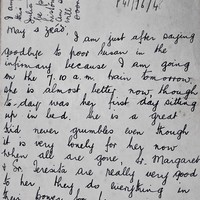 P41/96/4.
May 23rd.
I am just after saying
goodbye to poor Susan in the
infirmary because I am going
on the 7.10 a.m. train tomorrow.
She is almost better now, though
to-day was her first day sitting
up in bed. She is a great
kid never grumbles even though
it is very lonely for her now
when all are gone. Sr. Margaret
& Sr. Teresita are really very good
to her, they do everything in
their power for